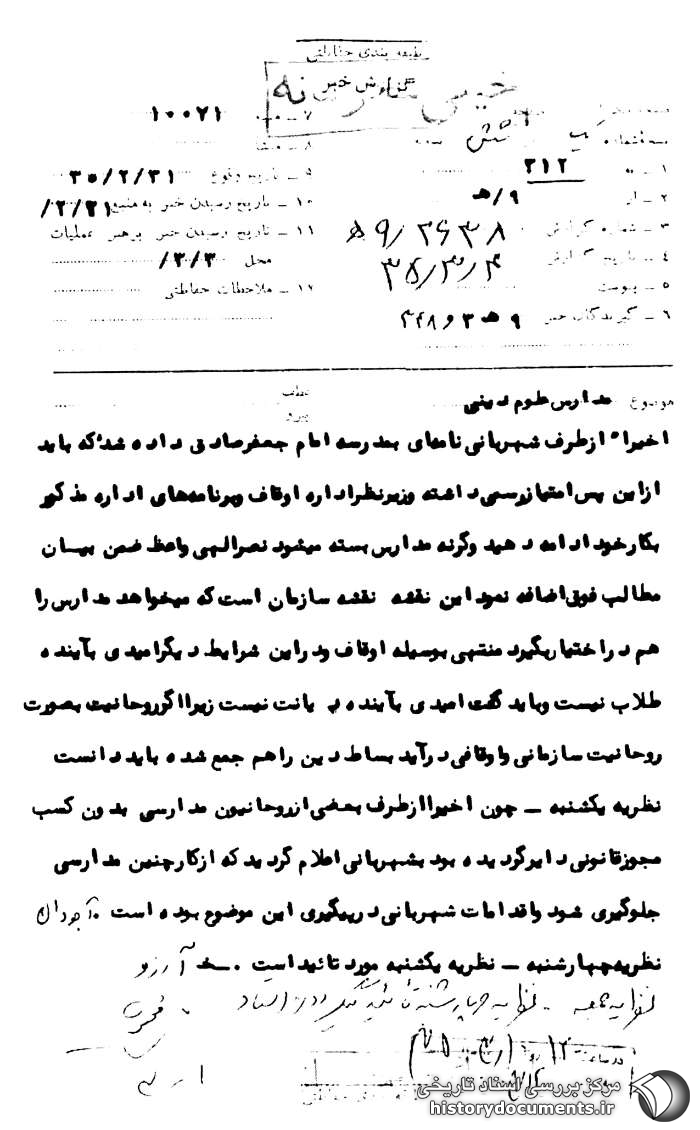 طبقه بندی حفاظتی
گزارش خبر
خیلی محرمانه
۷ – ۱۰۰۷۱
شش
۸ – منشاء
۱ – به ۳۱۲
۹ – تاریخ وقوع ۳۵/۲/۳۱
۲ – از ۹/ھ
۱۰ – تاریخ رسیدن خبر به منبع ۲/۳۱/
۳ – شماره گزارش ۵۹/۲۶۳۸
۱۱ – تاریخ رسیدن خبر برهبر عملیات
۴ – تاریخ گزارش ۳۵/۳/۴
محل ۳/۳/
۵ – پیوست
۱۲ – ملاحظات حفاظتی
۶ – گیرندگان خبر ۹ ھ ۳ و ۳۴۸
موضوع مدارس علوم دینی
عطف
پیرو
اخیرا" ازطرف شهربانی نامه‌ای بمدرسه امام جعفرصادق داده شدکه باید
ازاین پس امتیازرسمی داشته وزیرنظراداره اوقاف وبرنامه‌های اداره مذکور
بکارخود ادامه دهید وگرنه مدارس بسته میشود نصرالهی واعظ ضمن بیان
مطالب فوق اضافه نمود این نقشه نقشه سازمان است که میخواهد مدارس را
هم دراختیاربگیرد منتهی بوسیله اوقاف ودراین شرایط دیگرامیدی بآینده
طلاب نیست وباید گفت امیدی بآینده دیانت نیست زیرااگرروحانیت بصورت
روحانیت سازمانی واوقافی درآید بساط دین راهم جمع شده باید دانست
نظریه یکشنبه – چون اخیراازطرف بعضی ازروحانیون مدارسی بدون کسب
مجوزقانونی دایرگردیده بود بشهربانی اعلام گردید که ازکارچنین مدارسی
جلوگیری شود واقدامات شهربانی درپیگیری این موضوع بوده است .
نظریه چهارشنبه – نظریه یکشنبه مورد تائیداست . آرزو
نظریه جمعه - نظریه چهارشنبه
مرکز بررسی اسناد تاریخی
historydocuments.ir